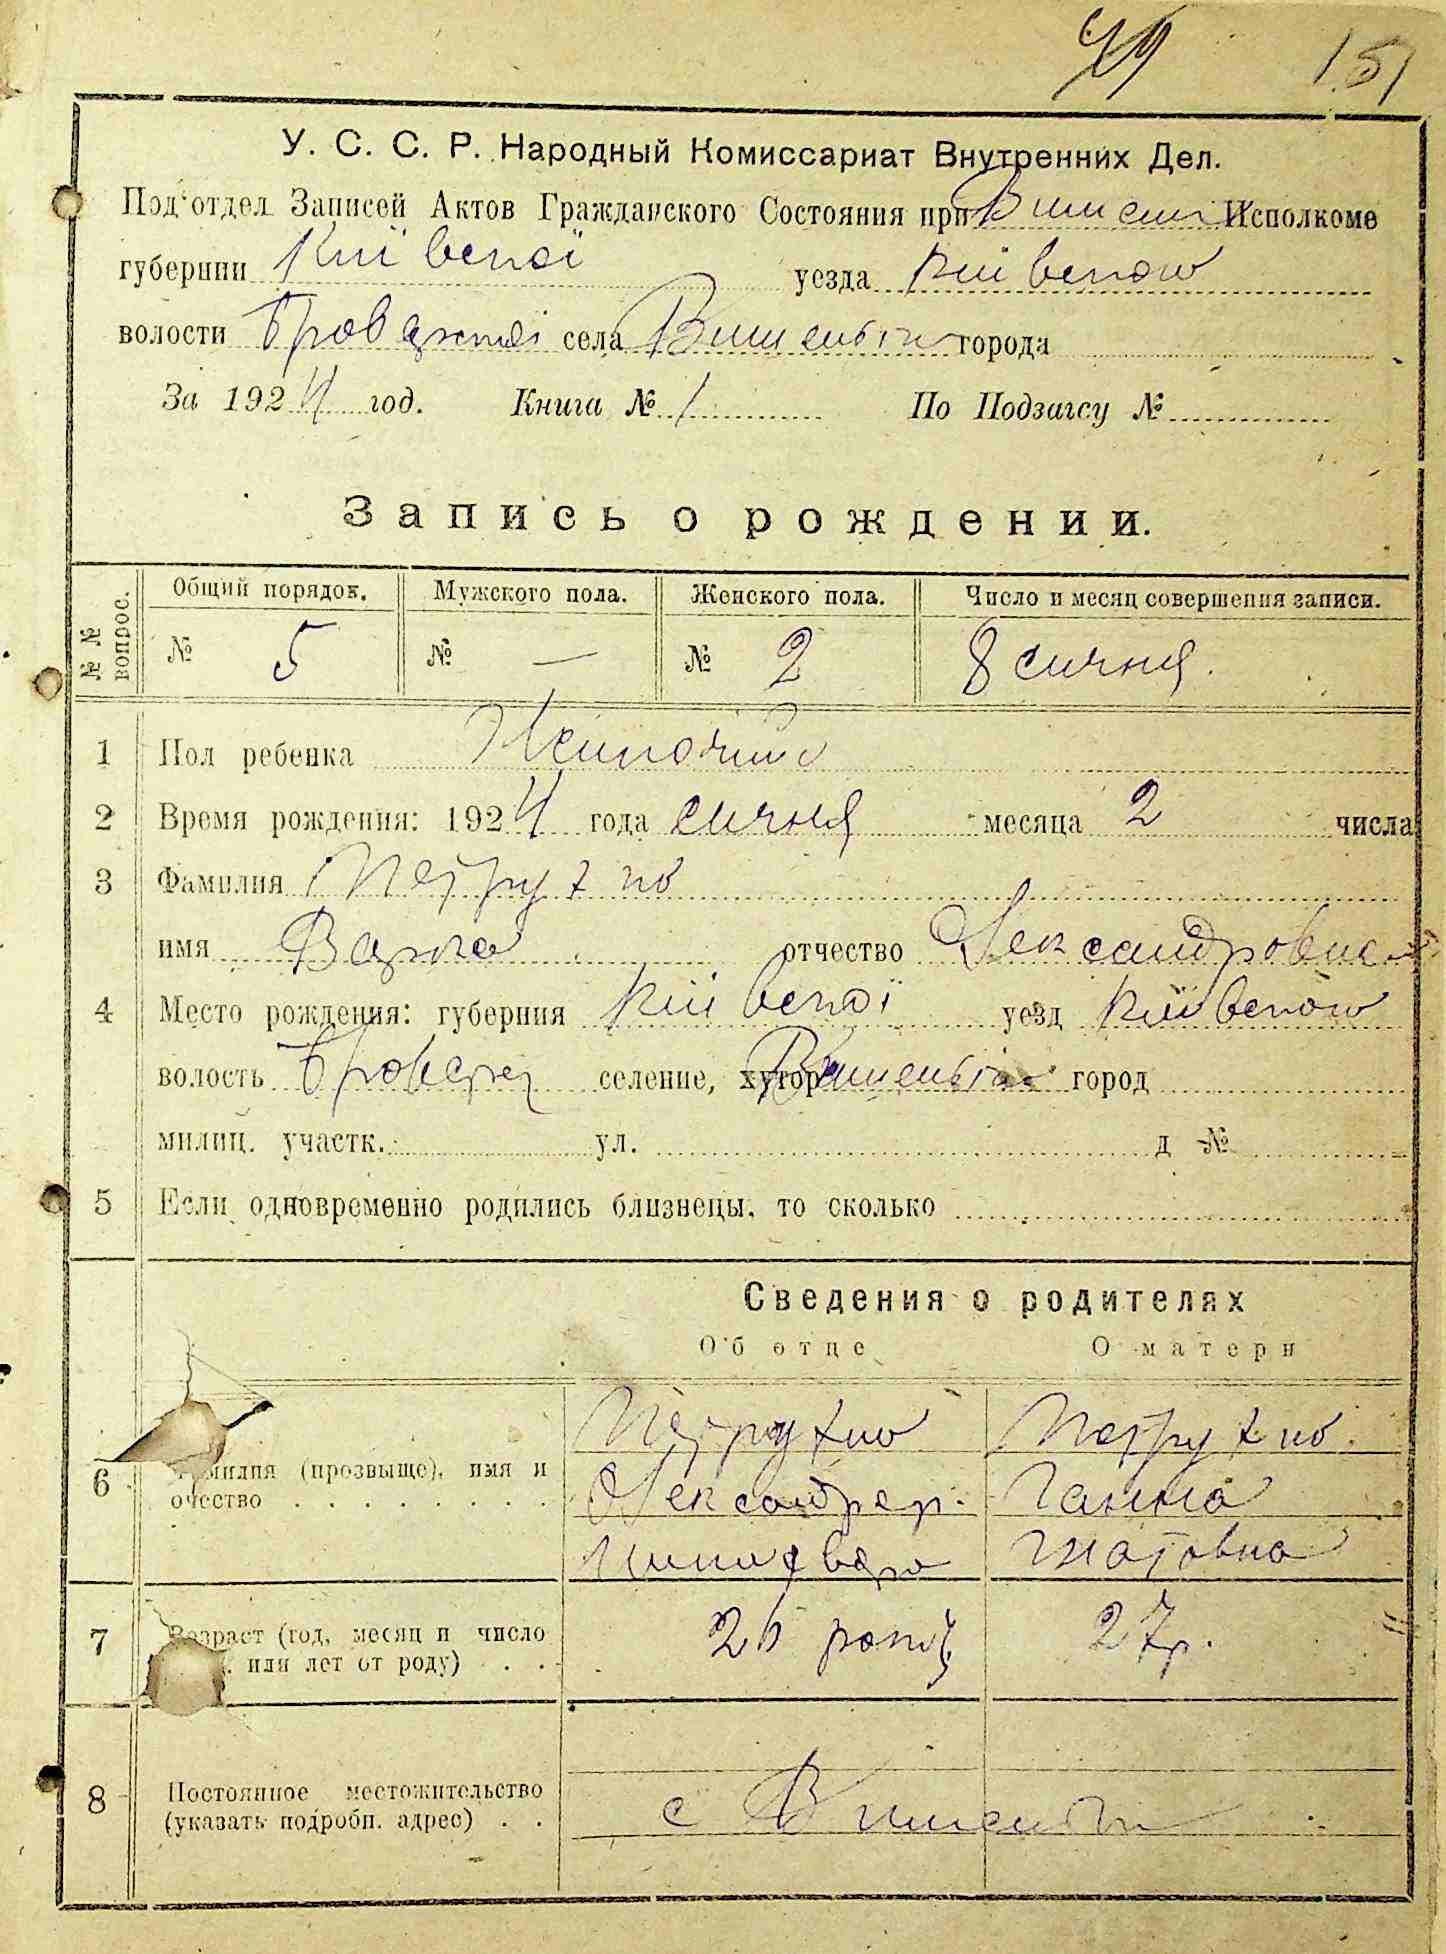 79 151
У. С. С. Р. Народный Комиссариат Внутренних Дел.
Под'отдел Записей Актов Гражданского Состояния при Исполкоме
губернии Київської уезда Київського
волости Броварської села Вишеньки города
За 1924 год. Книга № 1 По Подзагсу №
Запись о рождении.
№ № вопрос. Общий порядок. Мужского пола. Женского пола. Число и месяц совершения записи.
№ 5 № — № 2 8 сичня.
1 Пол ребенка
2 Время рождения: 1924 года сичня месяца 2 числа
3 Фамилия Петрухно
имя Варка отчество Олександровна
4 Место рождения: губерния Київської уезд Київського
волость селение, хутор Вишеньки город
милиц. участк. ул. д №
5 Если одновременно родились близнецы, то сколько
Сведения о родителях
Об отце О матери
6 Фамилия (прозвыще), имя и очество Петрухно Петрухно
Олександер Ганна
Гнатовна
7 Возраст (год, месяц и число или лет от роду) 26 років 27 р.
8 Постоянное местожительство (указать подробн. адрес) с Вишеньки